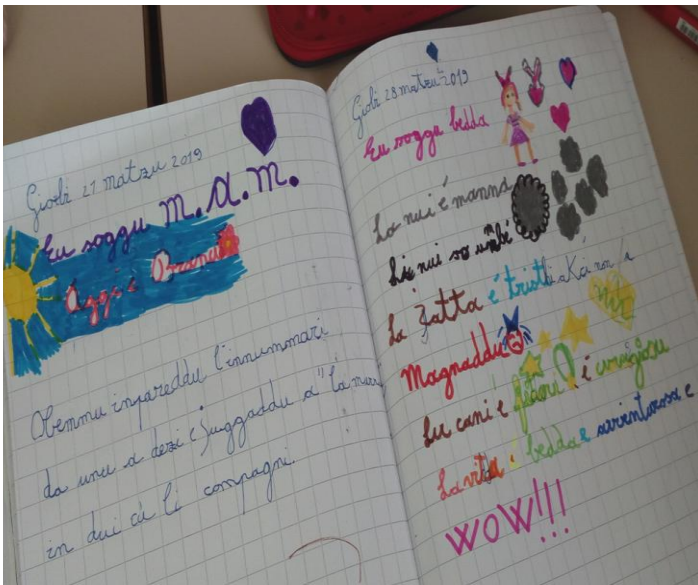 Giobi 21 matzu 2019
Eu soggu M. A. M.
Aggi è
Abemmu impareddu l'innummari
da unu a dezi e juggaddu a "la murra
in dui cù li compagni.
Giobi 28 matzu 2019
Eu soggu bedda
La nui é manna
Li nui so umbé
La jatta é trista
Magnaddu
Lu cani é é
La vita é bedda e avventurosa e
WOW!!!